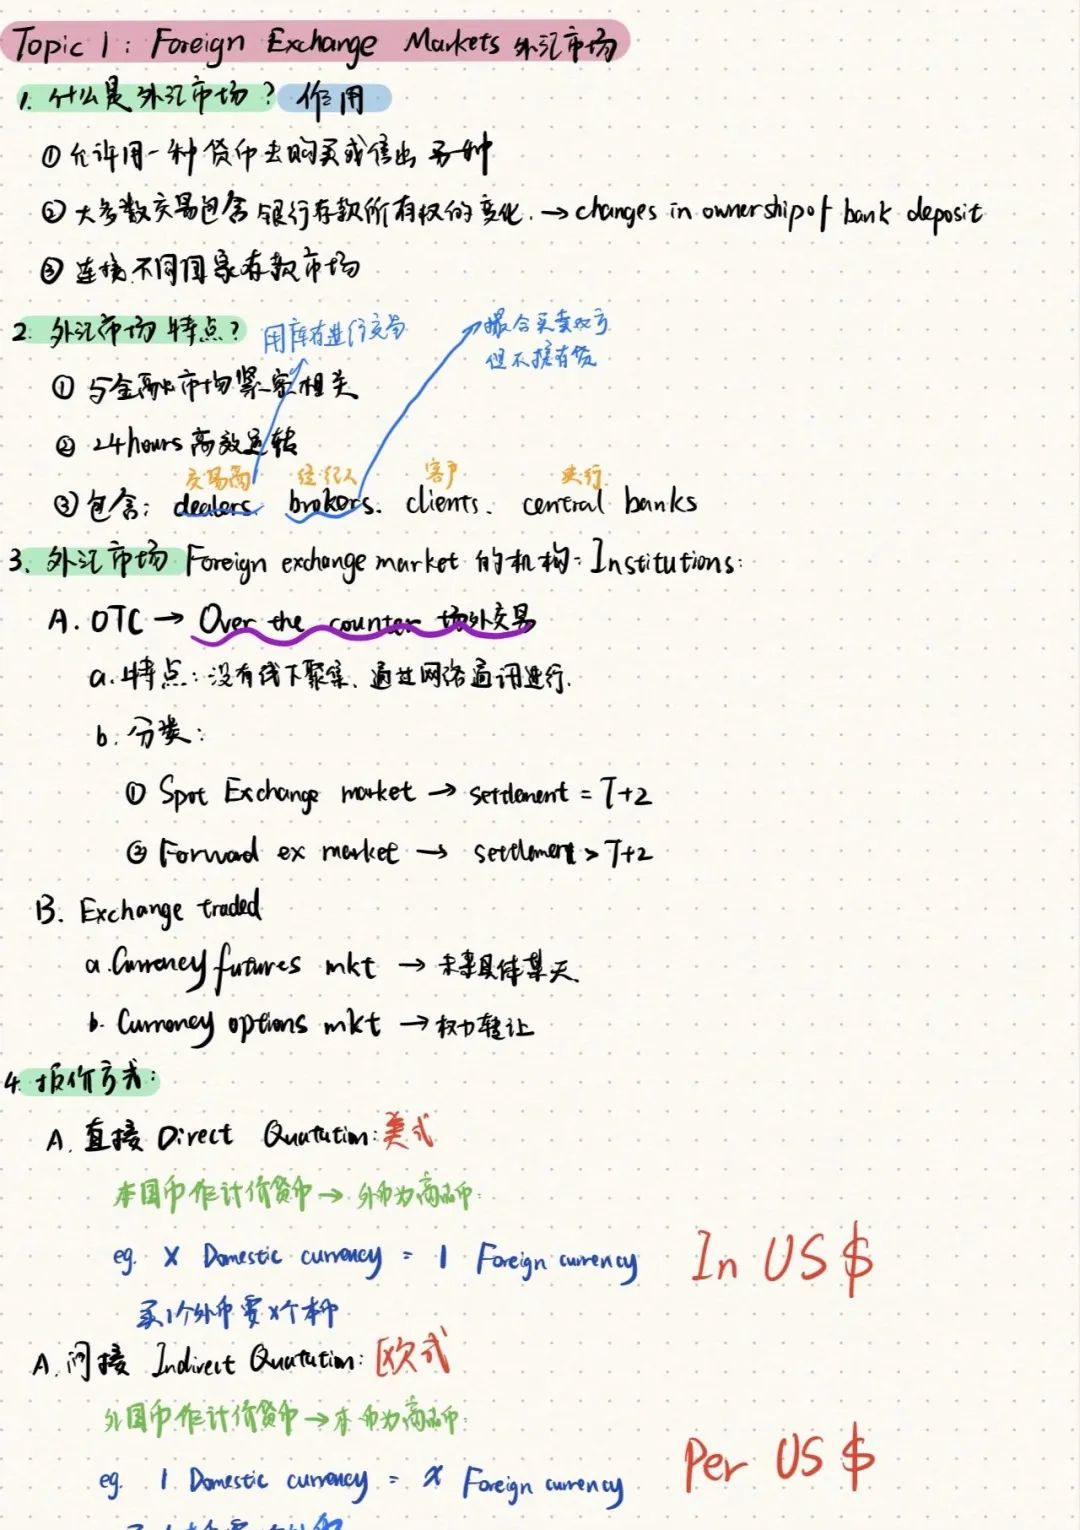 Topic 1: Foreign Exchange Markets 外汇市场
1. 什么是外汇市场? 作用
① 允许用一种货币去购买或售出另一种
② 大多数交易包含银行存款所有权的变化. → changes in ownership of bank deposit
③ 连接不同国家存款市场
2. 外汇市场特点? 用库存进行交易 撮合买卖双方
但不持有货
① 与金融市场紧密相关
② 24hours 高效运转
交易商 经纪人 客户 央行
③ 包含: dealers. brokers. clients. central banks
3. 外汇市场 Foreign exchange market 的机构: Institutions:
A. OTC → Over the counter 场外交易
a. 特点: 没有线下聚集、通过网络通讯进行.
b. 分类:
① Spot Exchange market → settlement = T+2
② Forward ex market → settlement > T+2
B. Exchange traded
a. Currency futures mkt → 未来具体某天.
b. Currency options mkt → 权力转让
4. 报价方式:
A. 直接 Direct Quatution: 美式
本国币作计价货币 → 外币为商品币:
eg. X Domestic currency = 1 Foreign currency In US $
买1个外币要X个本币
A. 间接 Indirect Quatution: 欧式
外国币作计价货币 → 本币为商品币:
eg. 1 Domestic currency = X Foreign currency Per US $